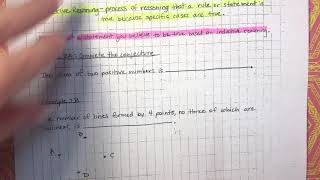 Reasoning - process of reasoning that a rule or statement is
true because specific cases are true.
statement you believe to be true based on inductive reasoning.
Complete the conjecture
The sum of two positive numbers is
number of lines formed by 4 points, no three of which are
is
B
A
C
D